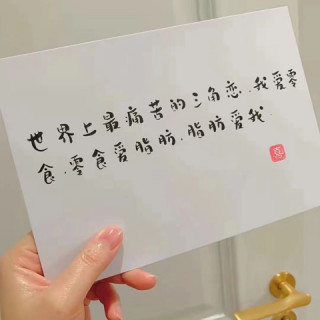 世界上最痛苦的三角恋.我爱零
食.零食爱脂肪.脂肪爱我.